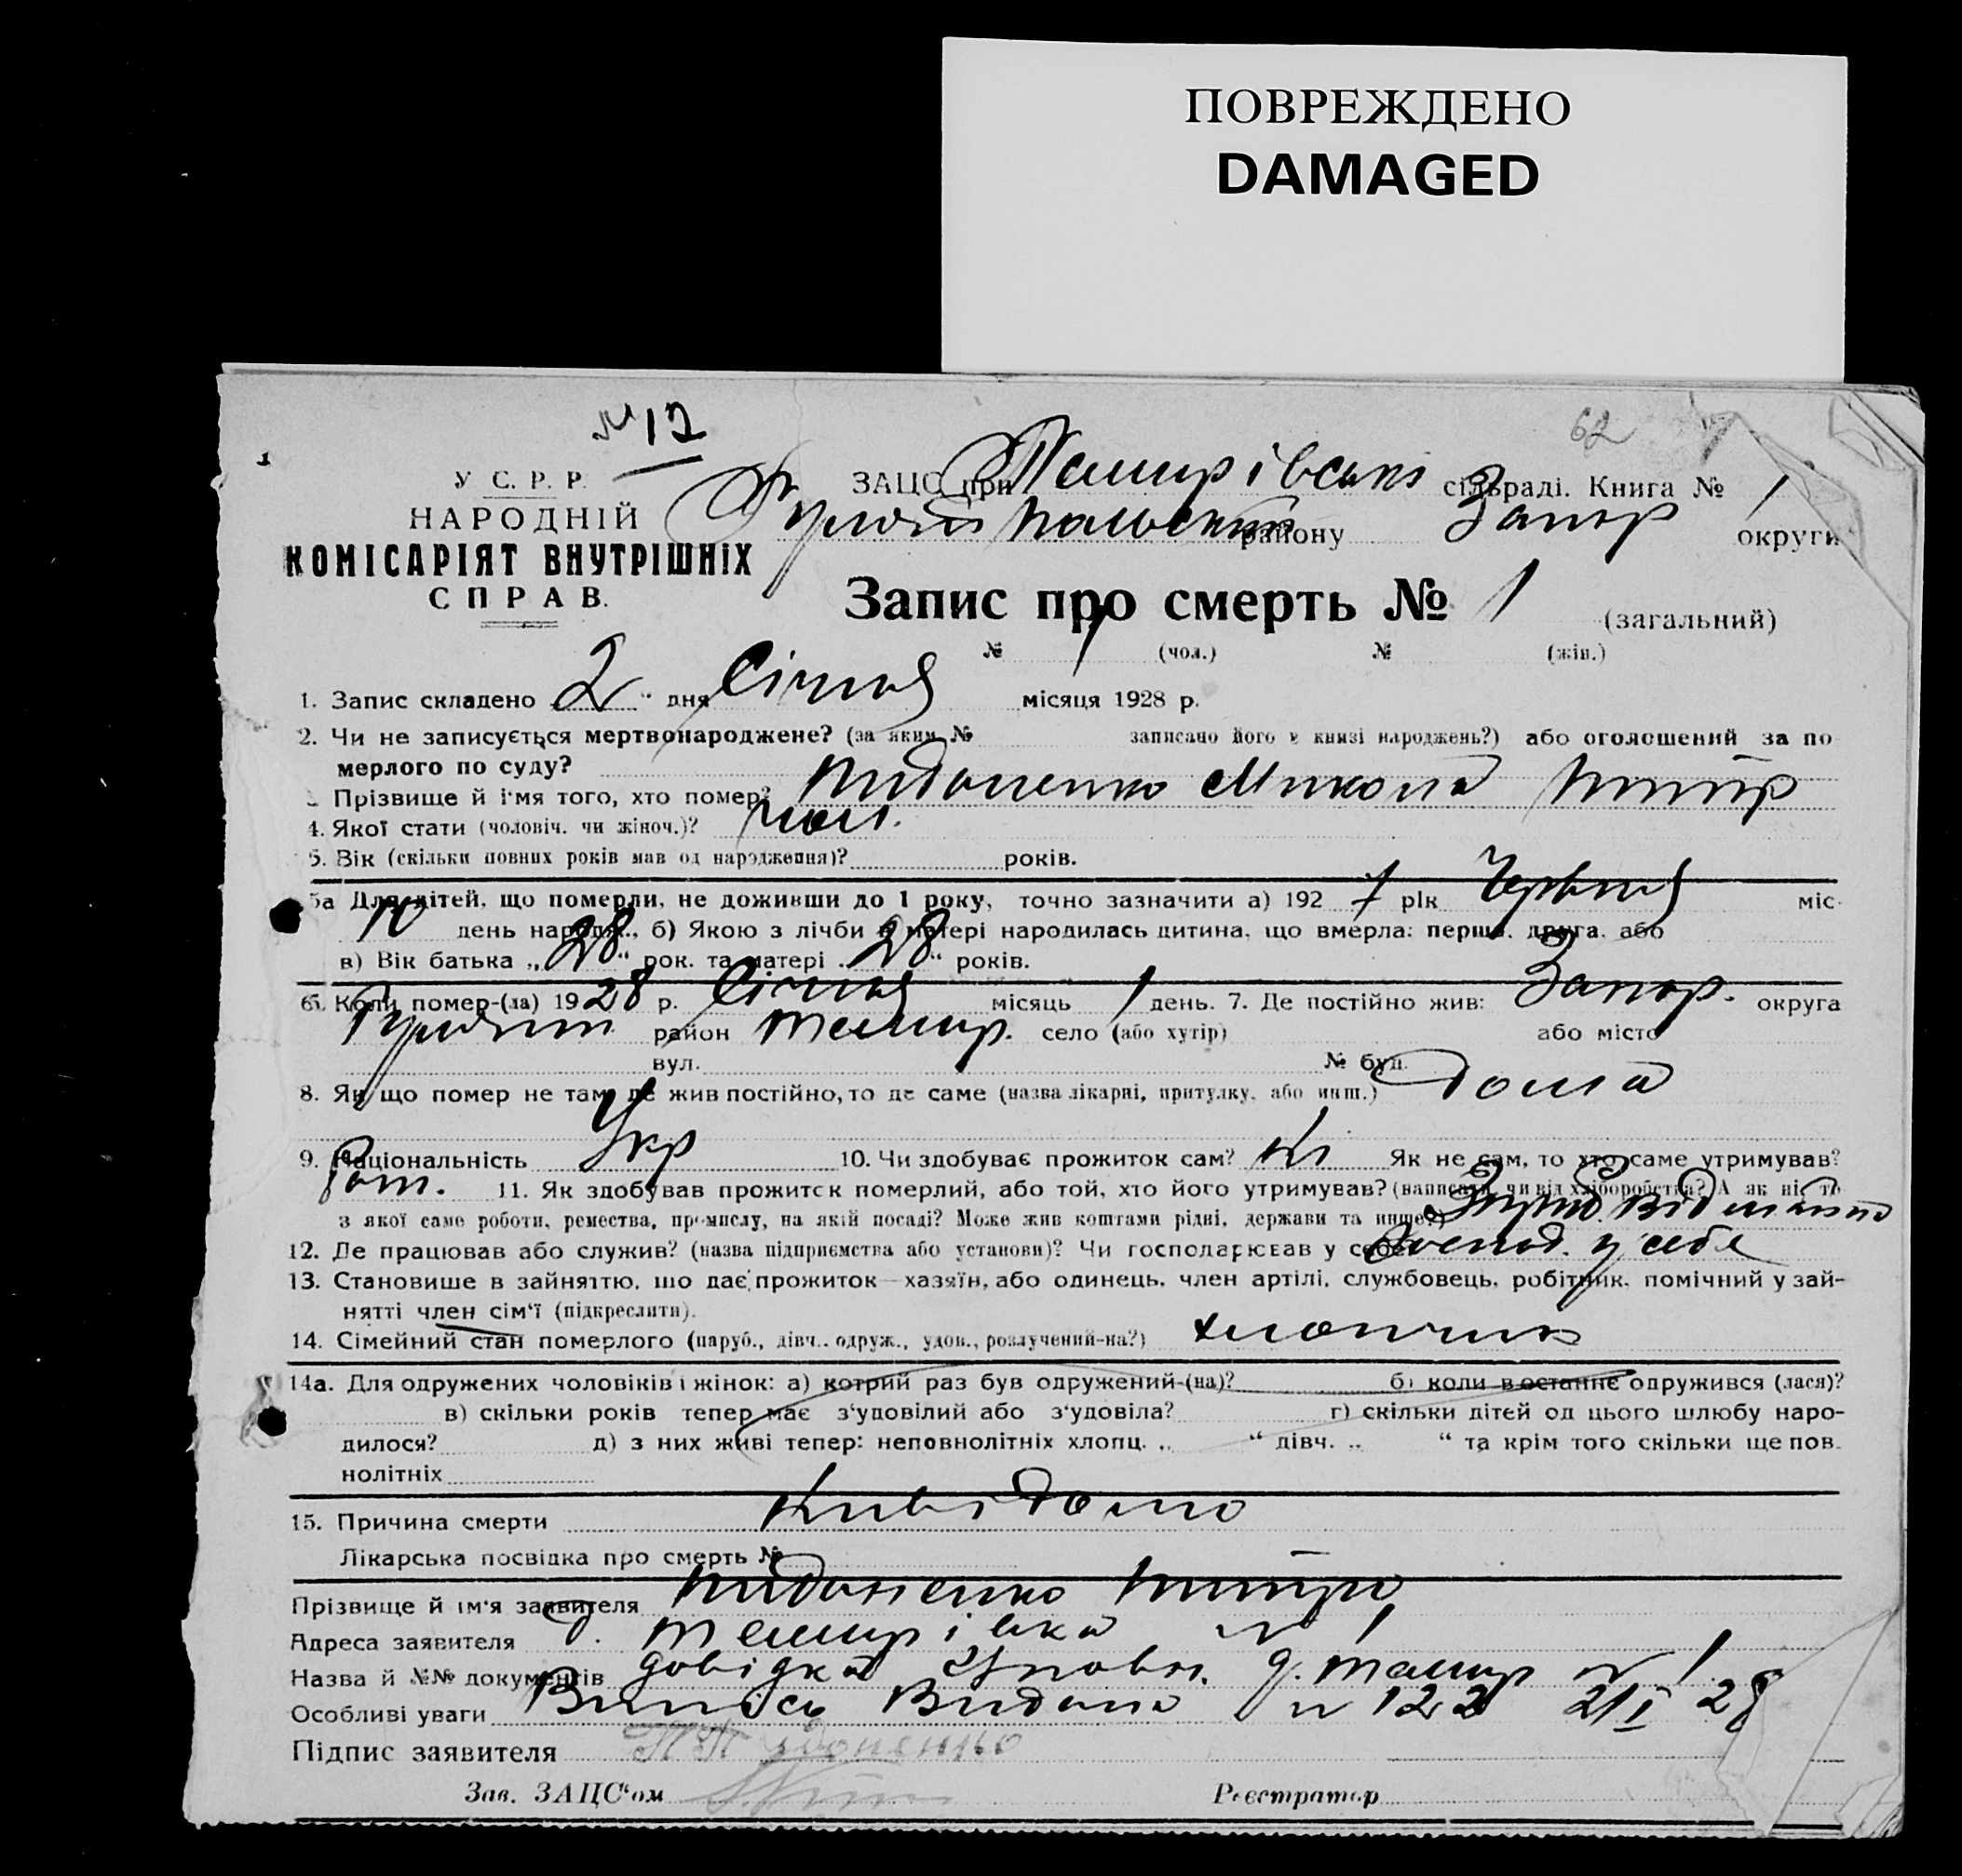 ПОВРЕЖДЕНО
DAMAGED
№ 12
62
У С. Р. Р.
НАРОДНІЙ
КОМІСАРІЯТ ВНУТРІШНІХ
СПРАВ.
ЗАЦС при Темирівські сільраді. Книга № 1
району Запор округи
Запис про смерть № 1 (загальний)
№ 1 (чол.) № (жін.)
1. Запис складено 2 " дня Січня місяця 1928 р.
2. Чи не записується мертвонароджене? (за яким № записано його в книзі народжень?) або оголошений за по
мерлого по суду?
Прізвище й ім'я того, хто помер? Микола
4. Якої стати (чоловіч. чи жіноч.)? чол.
5. Вік (скільки повних років мав од народження)? років.
5а Для дітей, що померли, не доживши до 1 року, точно зазначити а) 192 7 рік Червня міс.
10 день народж., б) Якою з лічби в матері народилась дитина, що вмерла: перша, друга, або
в) Вік батька „ 28 " рок. та матері 28 " років.
6. Коли помер-(ла) 19 28 р. Січня місяць 1 день. 7. Де постійно жив: Запор. округа
район Темир. село (або хутір) або місто
вул. № буд.
8. Якщо помер не там, де жив постійно, то де саме (назва лікарні, притулку, або инш.) Дома
9. Національність Укр 10. Чи здобував прожиток сам? Ні Як не сам, то хто саме утримував?
11. Як здобував прожиток померлий, або той, хто його утримував? (написати, чи від хліборобства? А як ні, то
з якої саме роботи, ремества, промислу, на якій посаді? Може жив коштами рідні, держави та инше?)
12. Де працював або служив? (назва підприємства або установи)? Чи господарював у себе? Господ. у себе
13. Становище в зайняттю, що дає прожиток—хазяїн, або одинець, член артілі, службовець, робітник, помічний у зай-
нятті член сім'ї (підкреслити).
14. Сімейний стан померлого (паруб., дівч., одруж., удов., розлучений-на?) хлопчик
14а. Для одружених чоловіків і жінок: а) котрий раз був одружений-(на)? б) коли востаннє одружився (лася)?
в) скільки років тепер має з'удовілий або з'удовіла? г) скільки дітей од цього шлюбу наро-
дилося? д) з них живі тепер: неповнолітніх хлопц. „ " дівч. „ " та крім того скільки ще пов.
нолітніх
15. Причина смерти Нивідомо
Лікарська посвідка про смерть №
Прізвище й ім'я заявителя
Адреса заявителя с. Темирівка № 1
Назва й №№ документів довідка Уповн. с. Темир № 1
Особливі уваги Випісь Видана № 122 2/I 28
Підпис заявителя
Зав. ЗАЦС'ом Реєстратор